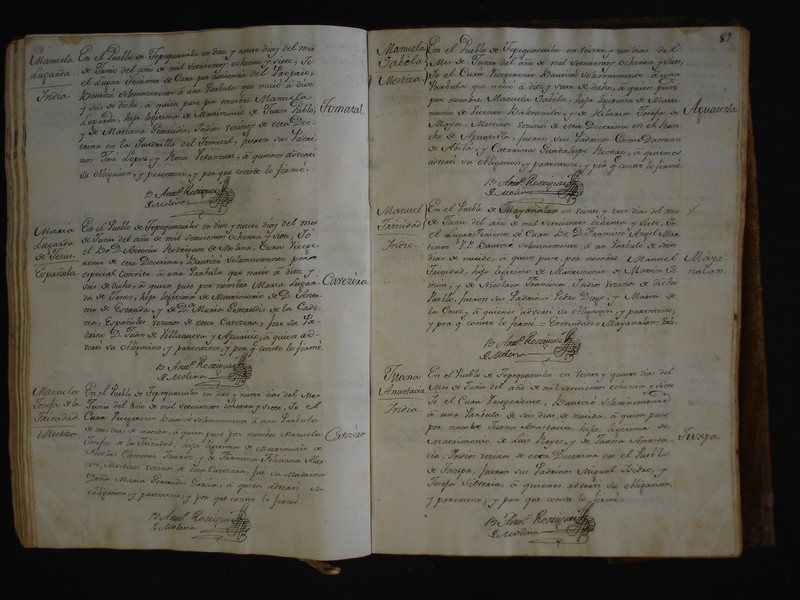 Manuela
Lugarda
India
En el Pueblo de Tepequacuilco en diez y nueve dias del mes
de Junio del año de mil Setecientos ochenta y Siete, Yo
el Lugar Teniente de Cura por ausencia del Propio,
Bauticé Solemnemente á una Parbula que nació á diez
y seis de dicho, á quien puse por nombre Manuela
Lugarda, hija legitima de Matrimonio de Juan Pablo,
y de Mariana Indios vecinos de esta Doc-
trina en la del Tomatal, fueron sus Padri-
nos José Lopez, y Rosa á quienes advertí
su obligacion, y parentesco, y por que conste lo firmé.
Tomatal
Br. Anto. Rodriguez
de Molina
Maria
Lugarda
de Jesus
Española
En el Pueblo de Tepequacuilco en diez y nueve dias del mes
de Junio del año de mil Setecientos ochenta y Siete, Yo
el Br. Dn. Antonio Rodriguez de Molina, Cura
de esta Doctrina, Bauticé Solemnemente
especial á una Parbula que nació á diez y
seis de dicho, á quien puse por nombre Maria Lugar-
da de Jesus, hija legitima de Matrimonio de Dn.
de Estrada, y de Da. Maria de la Cade-
na, Españoles vecinos de esta Cavezera, fue su Pa-
drino Dn. Juan de Villanueva y Aparicio, á quien ad-
vertí su obligacion, y parentesco, y por que conste lo firmé.
Cavezera
Br. Anto. Rodriguez
de Molina
Manuela
Josefa de la
Trinidad
Mestiza
En el Pueblo de Tepequacuilco en diez y nueve dias del Mes
de Junio del año de mil Setecientos ochenta y Siete, Yo el
Cura Bauticé Solemnemente á una Parbula
de tres dias de nacida, á quien puse por nombre Manuela
Josefa de la Trinidad, hija legitima de Matrimonio de
Clemente y de Francisca Feliciana
Mestizos vecinos de esta Cavezera, fue su Madrina
Doña Maria Garcia, á quien advertí su
obligacion, y parentesco, y por que conste lo firmé.
Cavezera
Br. Anto. Rodriguez
de Molina
87
Manuela
Isabela
Mestiza
En el Pueblo de Tepequacuilco en Veinte y un dias del
Mes de Junio del año de mil Setecientos ochenta y Siete,
Yo el Cura Bauticé Solemnemente á una
Parbula que nació á diez y seis de dicho, á quien puse
por nombre Manuela Isabela, hija legitima de Matri-
monio de y de Hilaria Josefa de
Mestizos vecinos de esta Doctrina en el Ran-
cho de fueron sus Padrinos
de Abila, y Catarina Guadalupe Roman, á quienes
advertí su obligacion, y parentesco, y por q. conste lo firmé.
Br. Anto. Rodriguez
de Molina
Manuel
Trinidad
Indio
En el Pueblo de Mayanalan en veinte y tres dias del mes
de Junio del año de mil Setecientos ochenta y Siete, Yo
el Lugar Teniente de Cura Br. Dn. Francisco Angel
Bauticé Solemnemente á un Parbulo de siete
dias de nacido, á quien puse por nombre Manuel
Trinidad, hijo legitimo de Matrimonio de Martin Si-
mon, y de Nicolasa Francisca, Indios vecinos de dicho
Pueblo, fueron sus Padrinos Pedro Diego, y Maria de
la Cruz, á quienes advertí su obligacion, y parentesco,
y por q. conste lo firmé = Enmendado = Mayanalan =
Maya-
nalan
Br. Anto. Rodriguez
de Molina
Juana
Anastacia
India
En el Pueblo de Tepequacuilco en Veinte y quatro dias del
Mes de Junio del año de mil Setecientos ochenta y Siete
Yo el Cura Bauticé Solemnemente
á una Parbula de seis dias de nacida, á quien puse
por nombre Juana Anastacia, hija legitima de
Matrimonio de Luis Reyes, y de Juana Anasta-
cia, Indios vecinos de esta Doctrina en el Pueblo
de fueron sus Padrinos Miguel Isidro, y
Josefa Silveria, á quienes advertí su obligacion,
y parentesco, y por que conste lo firmé.
Br. Anto. Rodriguez
de Molina